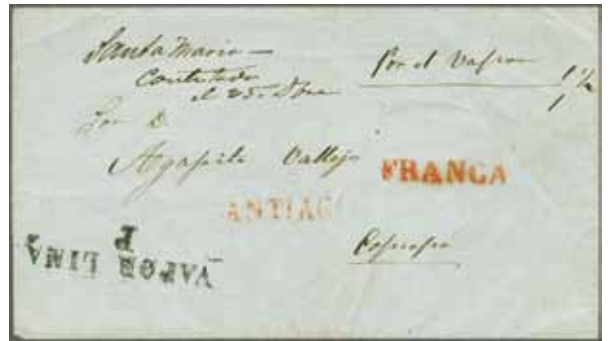 Santa Maria —
Contestada
el 25
Por el Vapor
1 ½
1
Sor D
Agapito Vallejo
FRANCA
ANTIAG
Copiapó
VAPOR LIMA
P